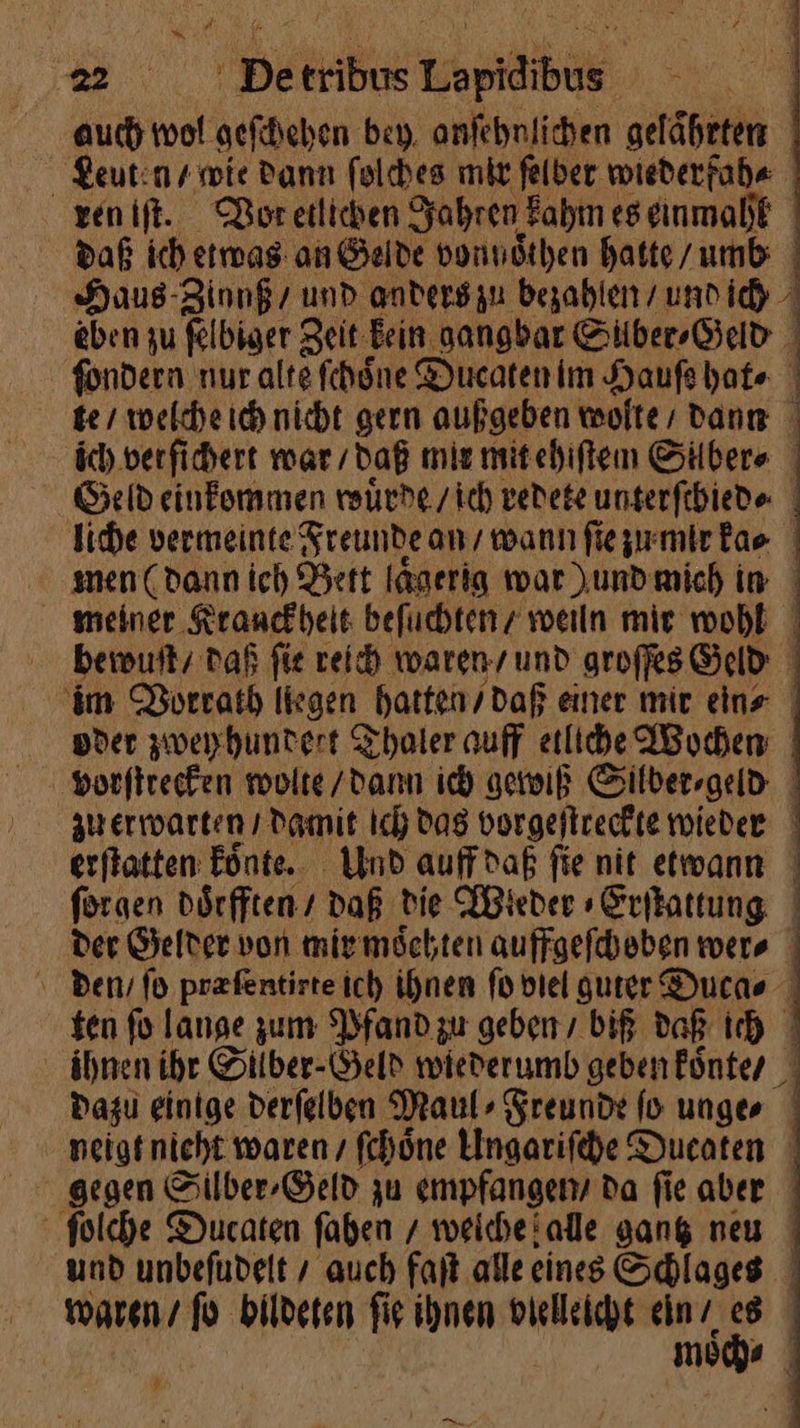 22 De tribus Lapidibus
auch wol geſchehen bey anſehnlichen gelåhrten
Leuten / wie dann ſolches mir ſelber wiederfah⸗
ren iſt. Vor etlichen Jahren kahm es einmahl
daß ich etwas an Gelde vonnöthen hatte / umb
Haus-Zinnß / und anders zu bezahlen / und ich
eben zu ſelbiger Zeit kein gangbar Silber⸗Geld
ſondern nur alte ſchöne Ducaten im Hauſe hat⸗
te / welche ich nicht gern außgeben wolte / dann
ich verſichert war / daß mir mit ehiſtem Silber⸗
Geld einkommen wuͤrde / ich redete unterſchied⸗
liche vermeinte Freunde an / wann ſie zu mir ka⸗
men ( dann ich Bett lågerig war ) und mich in
meiner Kranckheit beſuchten / weiln mir wohl
bewuſt / daß ſie reich waren / und groſſes Geld
im Vorrath liegen hatten / daß einer mir ein⸗
oder zweyhundert Thaler auff etliche Wochen
vorſtrecken wolte / dann ich gewiß Silber⸗geld
zu erwarten / damit ich das vorgeſtreckte wieder
erſtatten könte. Und auff daß ſie nit etwann
ſorgen dörfften / daß die Wieder⸗Erſtattung
der Gelder von mir möchten auffgeſchoben wer⸗
den / ſo præſentirte ich ihnen ſo viel guter Duca⸗
ten ſo lange zum Pfand zu geben / biß daß ich
ihnen ihr Silber-Geld wiederumb geben könte /
dazu einige derſelben Maul⸗Freunde ſo unge⸗
neigt nicht waren / ſchöne Ungariſche Ducaten
gegen Silber⸗Geld zu empfangen / da ſie aber
ſolche Ducaten ſahen / welche alle gantz neu
und unbeſudelt / auch faſt alle eines Schlages
waren / ſo bildeten ſie ihnen vielleicht ein / es
möch⸗